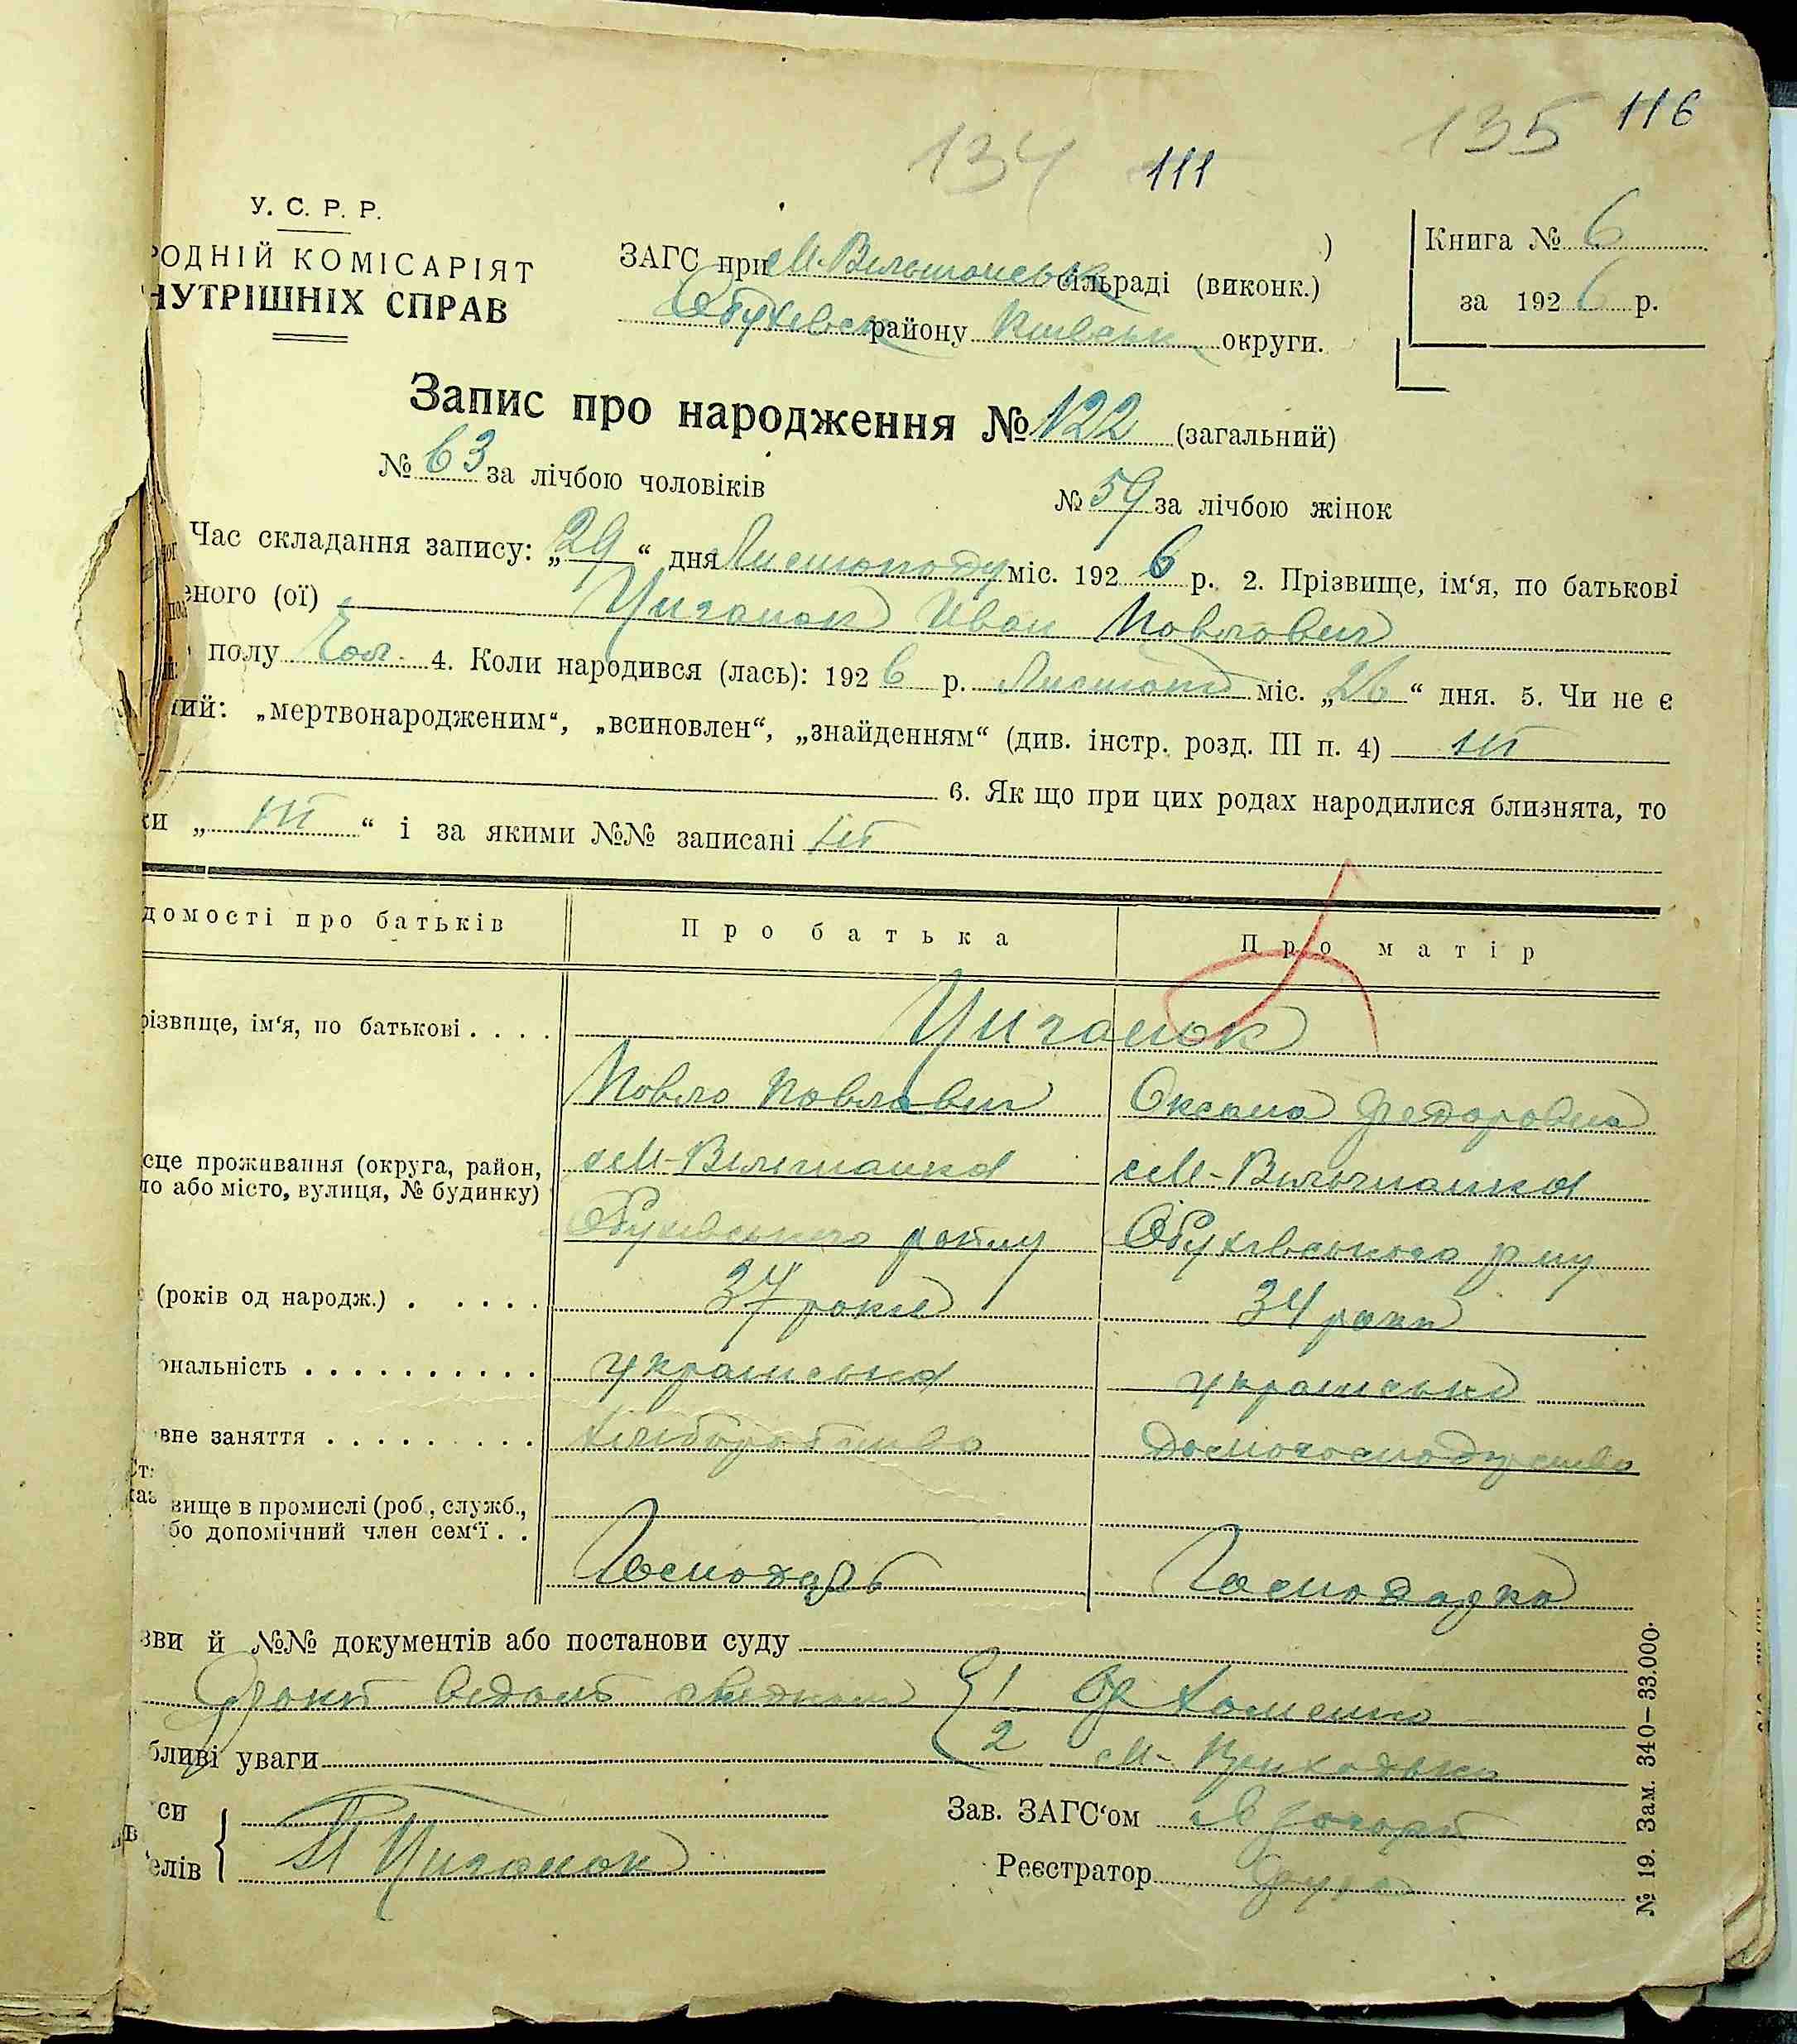 134 111 135 116
У. С. Р. Р.
РОДНІЙ КОМІСАРІЯТ
НУТРІШНІХ СПРАВ
ЗАГС при М-Вільшанськ сільраді (виконк.)
Обухівськ району Київськ округи.
Книга № 6
за 1926 р.
Запис про народження № 122 (загальний)
№ 63 за лічбою чоловіків № 59 за лічбою жінок
Час складання запису: „29“ дня Листопаду міс. 1926 р. 2. Прізвище, ім‘я, по батькові
еного (ої) Циганок Иван Павлович
полу Чол. 4. Коли народився (лась): 1926 р. Листопад міс. „26“ дня. 5. Чи не є
ний: „мертвонародженим“, „всиновлен“, „знайденням“ (див. інстр. розд. III п. 4) ні
6. Як що при цих родах народилися близнята, то
ки „ні“ і за якими №№ записані ні
домості про батьків Про батька Про матір
різвище, ім‘я, по батькові . . . . Циганок
Павло Павлович Оксана Федоровна
сце проживання (округа, район, м-Вільшанка м-Вільшанка
ло або місто, вулиця, № будинку)
Обухівського району Обухівського р-ну
(років од народж.) . . . . . 37 років 34 роки
ональність . . . . . . . . . . українська українська
вне заняття . . . . . . . . . хліборобство домогосподарство
вище в промислі (роб., служб.,
бо допомічний член сем‘ї . .
Господарь Господарка
зви й №№ документів або постанови суду
свідки { 1 Хоменко
бливі уваги 2 М- Приходько
си
елів { П Циганок
Зав. ЗАГС‘ом
Реєстратор
№ 19. Зам. 340–33.000.